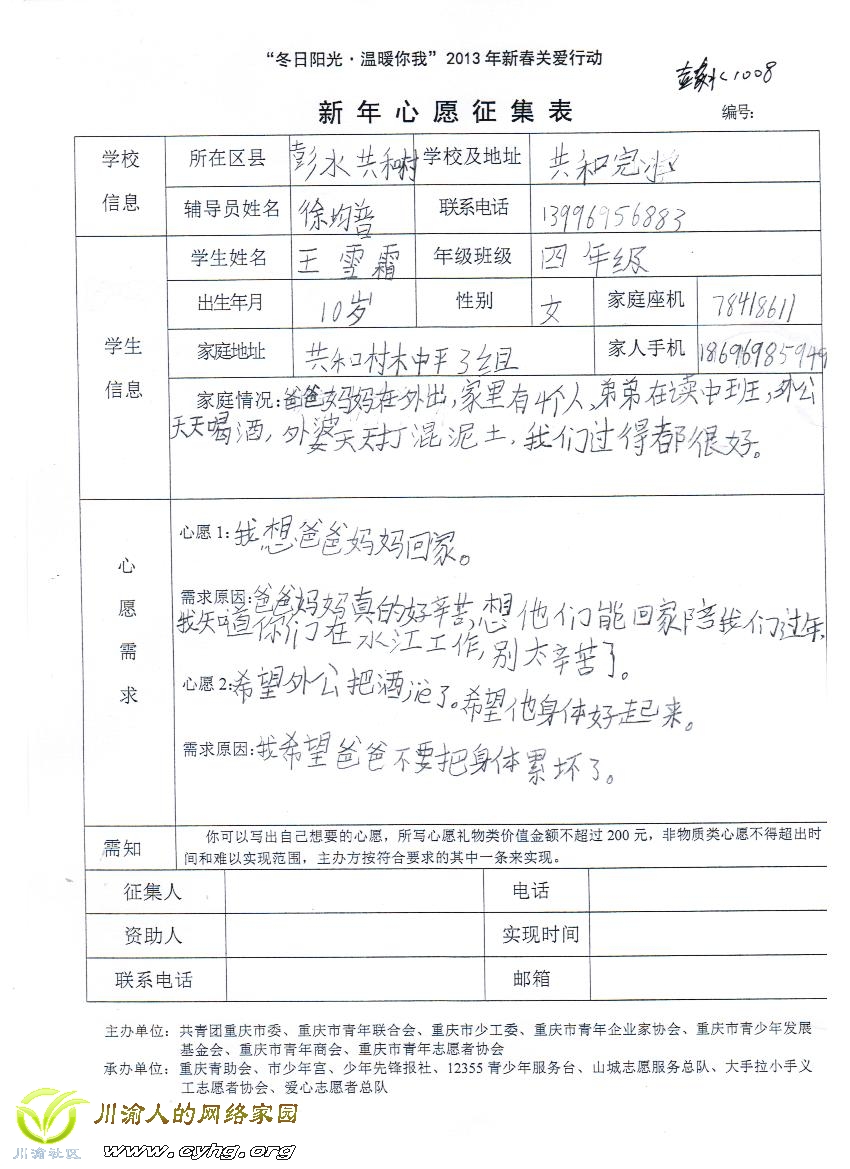 “冬日阳光·温暖你我”2013年新春关爱行动
彭水<1008
新年心愿征集表 编号:
学校信息 所在区县 彭水共和村 学校及地址 共和完小
辅导员姓名 徐均普 联系电话 13996956883
学生信息 学生姓名 王雪霜 年级班级 四年级
出生年月 10岁 性别 女 家庭座机 78418611
家庭地址 共和村木中平3组 家人手机 18696985949
家庭情况:爸爸妈妈在外出,家里有4个人,弟弟在读中班,外公
天天喝酒,外婆天天打混泥土,我们过得都很好。
心愿需求
心愿1:我想爸爸妈妈回家。
需求原因:爸爸妈妈真的好辛苦,想他们能回家陪我们过年,
我知道你们在水江工作,别太辛苦了。
心愿2:希望外公把酒了。希望他身体好起来。
需求原因:我希望爸爸不要把身体累坏了。
需知 你可以写出自己想要的心愿,所写心愿礼物类价值金额不超过200元,非物质类心愿不得超出时
间和难以实现范围,主办方按符合要求的其中一条来实现。
征集人 电话
资助人 实现时间
联系电话 邮箱
主办单位:共青团重庆市委、重庆市青年联合会、重庆市少工委、重庆市青年企业家协会、重庆市青少年发展
基金会、重庆市青年商会、重庆市青年志愿者协会
承办单位:重庆青助会、市少年宫、少年先锋报社、12355青少年服务台、山城志愿服务总队、大手拉小手义
工志愿者协会、爱心志愿者总队
川渝人的网络家园
川渝社区 www.cyhg.org